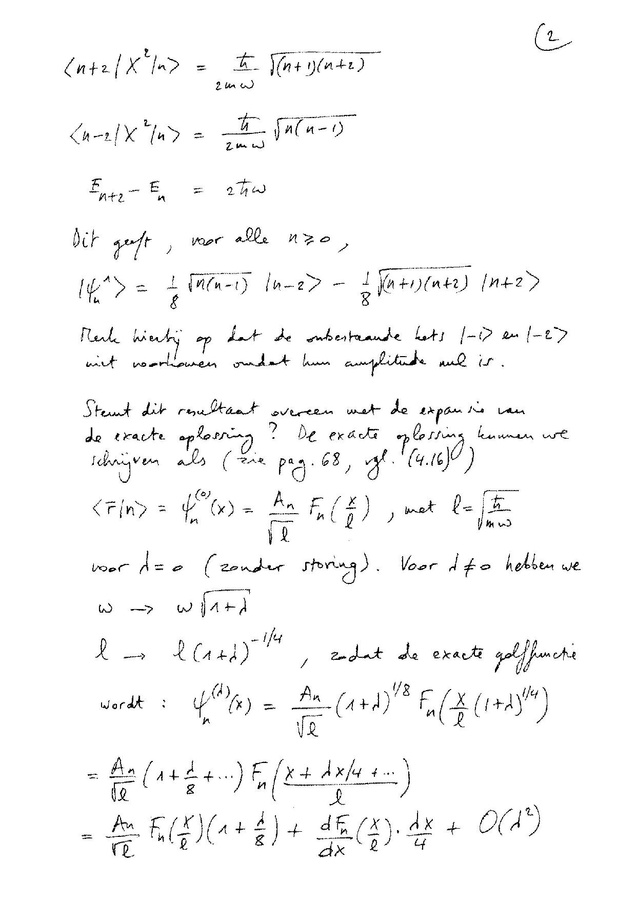 (2
⟨n+2|X²|n⟩ = ħ/2mω √(n+1)(n+2)
⟨n-2|X²|n⟩ = ħ/2mω √n(n-1)
E_{n+2} - E_n = 2ħω
Dit geeft, voor alle n ≥ 0,
|ψ_n^1⟩ = 1/8 √n(n-1) |n-2⟩ - 1/8 √(n+1)(n+2) |n+2⟩
Merk hierbij op dat de onbestaande kets |-1⟩ en |-2⟩
niet voorkomen omdat hun amplitude nul is.
Stemt dit resultaat overeen met de expansie van
de exacte oplossing? De exacte oplossing kunnen we
schrijven als (zie pag. 68, vgl. (4.16))
⟨r̄|n⟩ = ψ_n^{(0)}(x) = A_n/√l F_n(x/l), met l = √ħ/mω
voor λ = 0 (zonder storing). Voor λ ≠ 0 hebben we
ω → ω√1+λ
l → l(1+λ)^{-1/4}, zodat de exacte golffunctie
wordt : ψ_n^{(λ)}(x) = A_n/√l (1+λ)^{1/8} F_n(x/l (1+λ)^{1/4})
= A_n/√l (1 + λ/8 + ...) F_n((x + λx/4 + ...)/l)
= A_n/√l F_n(x/l)(1 + λ/8) + dF_n/dx (x/l) · λx/4 + O(λ²)